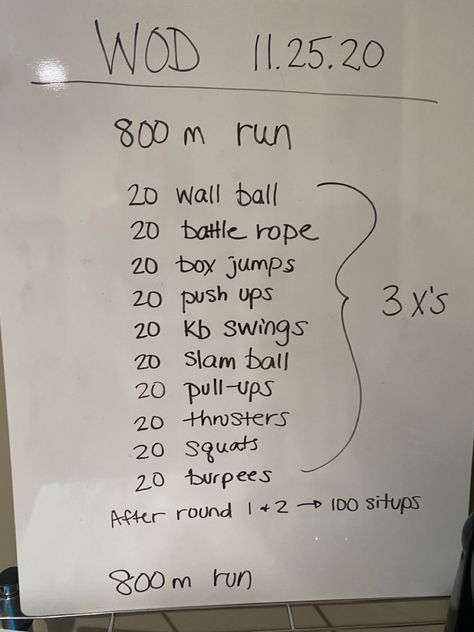 WOD 11.25.20
800 m run
20 wall ball
20 battle rope
20 box jumps
20 push ups
3 x's
20 kb swings
20 slam ball
20 pull-ups
20 thrusters
20 squats
20 burpees
After round 1 + 2 → 100 situps
800 m run